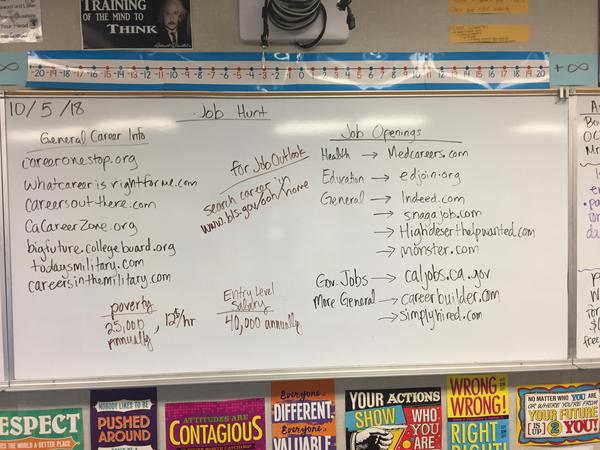 TRAINING
OF THE MIND TO
THINK
∞ -20 -19 -18 -17 -16 -15 -14 -13 -12 -11 -10 -9 -8 -7 -6 -5 -4 -3 -2 -1 0 1 2 3 4 5 6 7 8 9 10 11 12 13 14 15 16 17 18 19 20 +∞
10/5/18
Job Hunt
General Career Info
careeronestop.org
whatcareerisrightforme.com
careersoutthere.com
CaCareerZone.org
bigfuture.collegeboard.org
todaysmilitary.com
careersinthemilitary.com
for Job Outlook
search career in
www.bls.gov/ooh/home
Job Openings
Health → Medcareers.com
Education → edjoin.org
General → Indeed.com
→ snagajob.com
→ Highdeserthelpwanted.com
→ monster.com
Gov. Jobs → caljobs.ca.gov
More General → careerbuilder.com
→ simplyhired.com
poverty
25,000
annually
, 12$/hr
Entry Level
Salary
40,000 annually
RESPECT
MAKES THE WORLD A BETTER PLACE
NOBODY LIKES TO BE
PUSHED
AROUND
ATTITUDES ARE
CONTAGIOUS
Everyone is
DIFFERENT.
Everyone is
VALUABLE
YOUR ACTIONS
SHOW
WHO
YOU
ARE
WRONG
WRONG!
RIGHT
RIGHT!
NO MATTER WHO YOU ARE
OR WHERE YOU'RE FROM
YOUR FUTURE
IS UP 2 YOU!